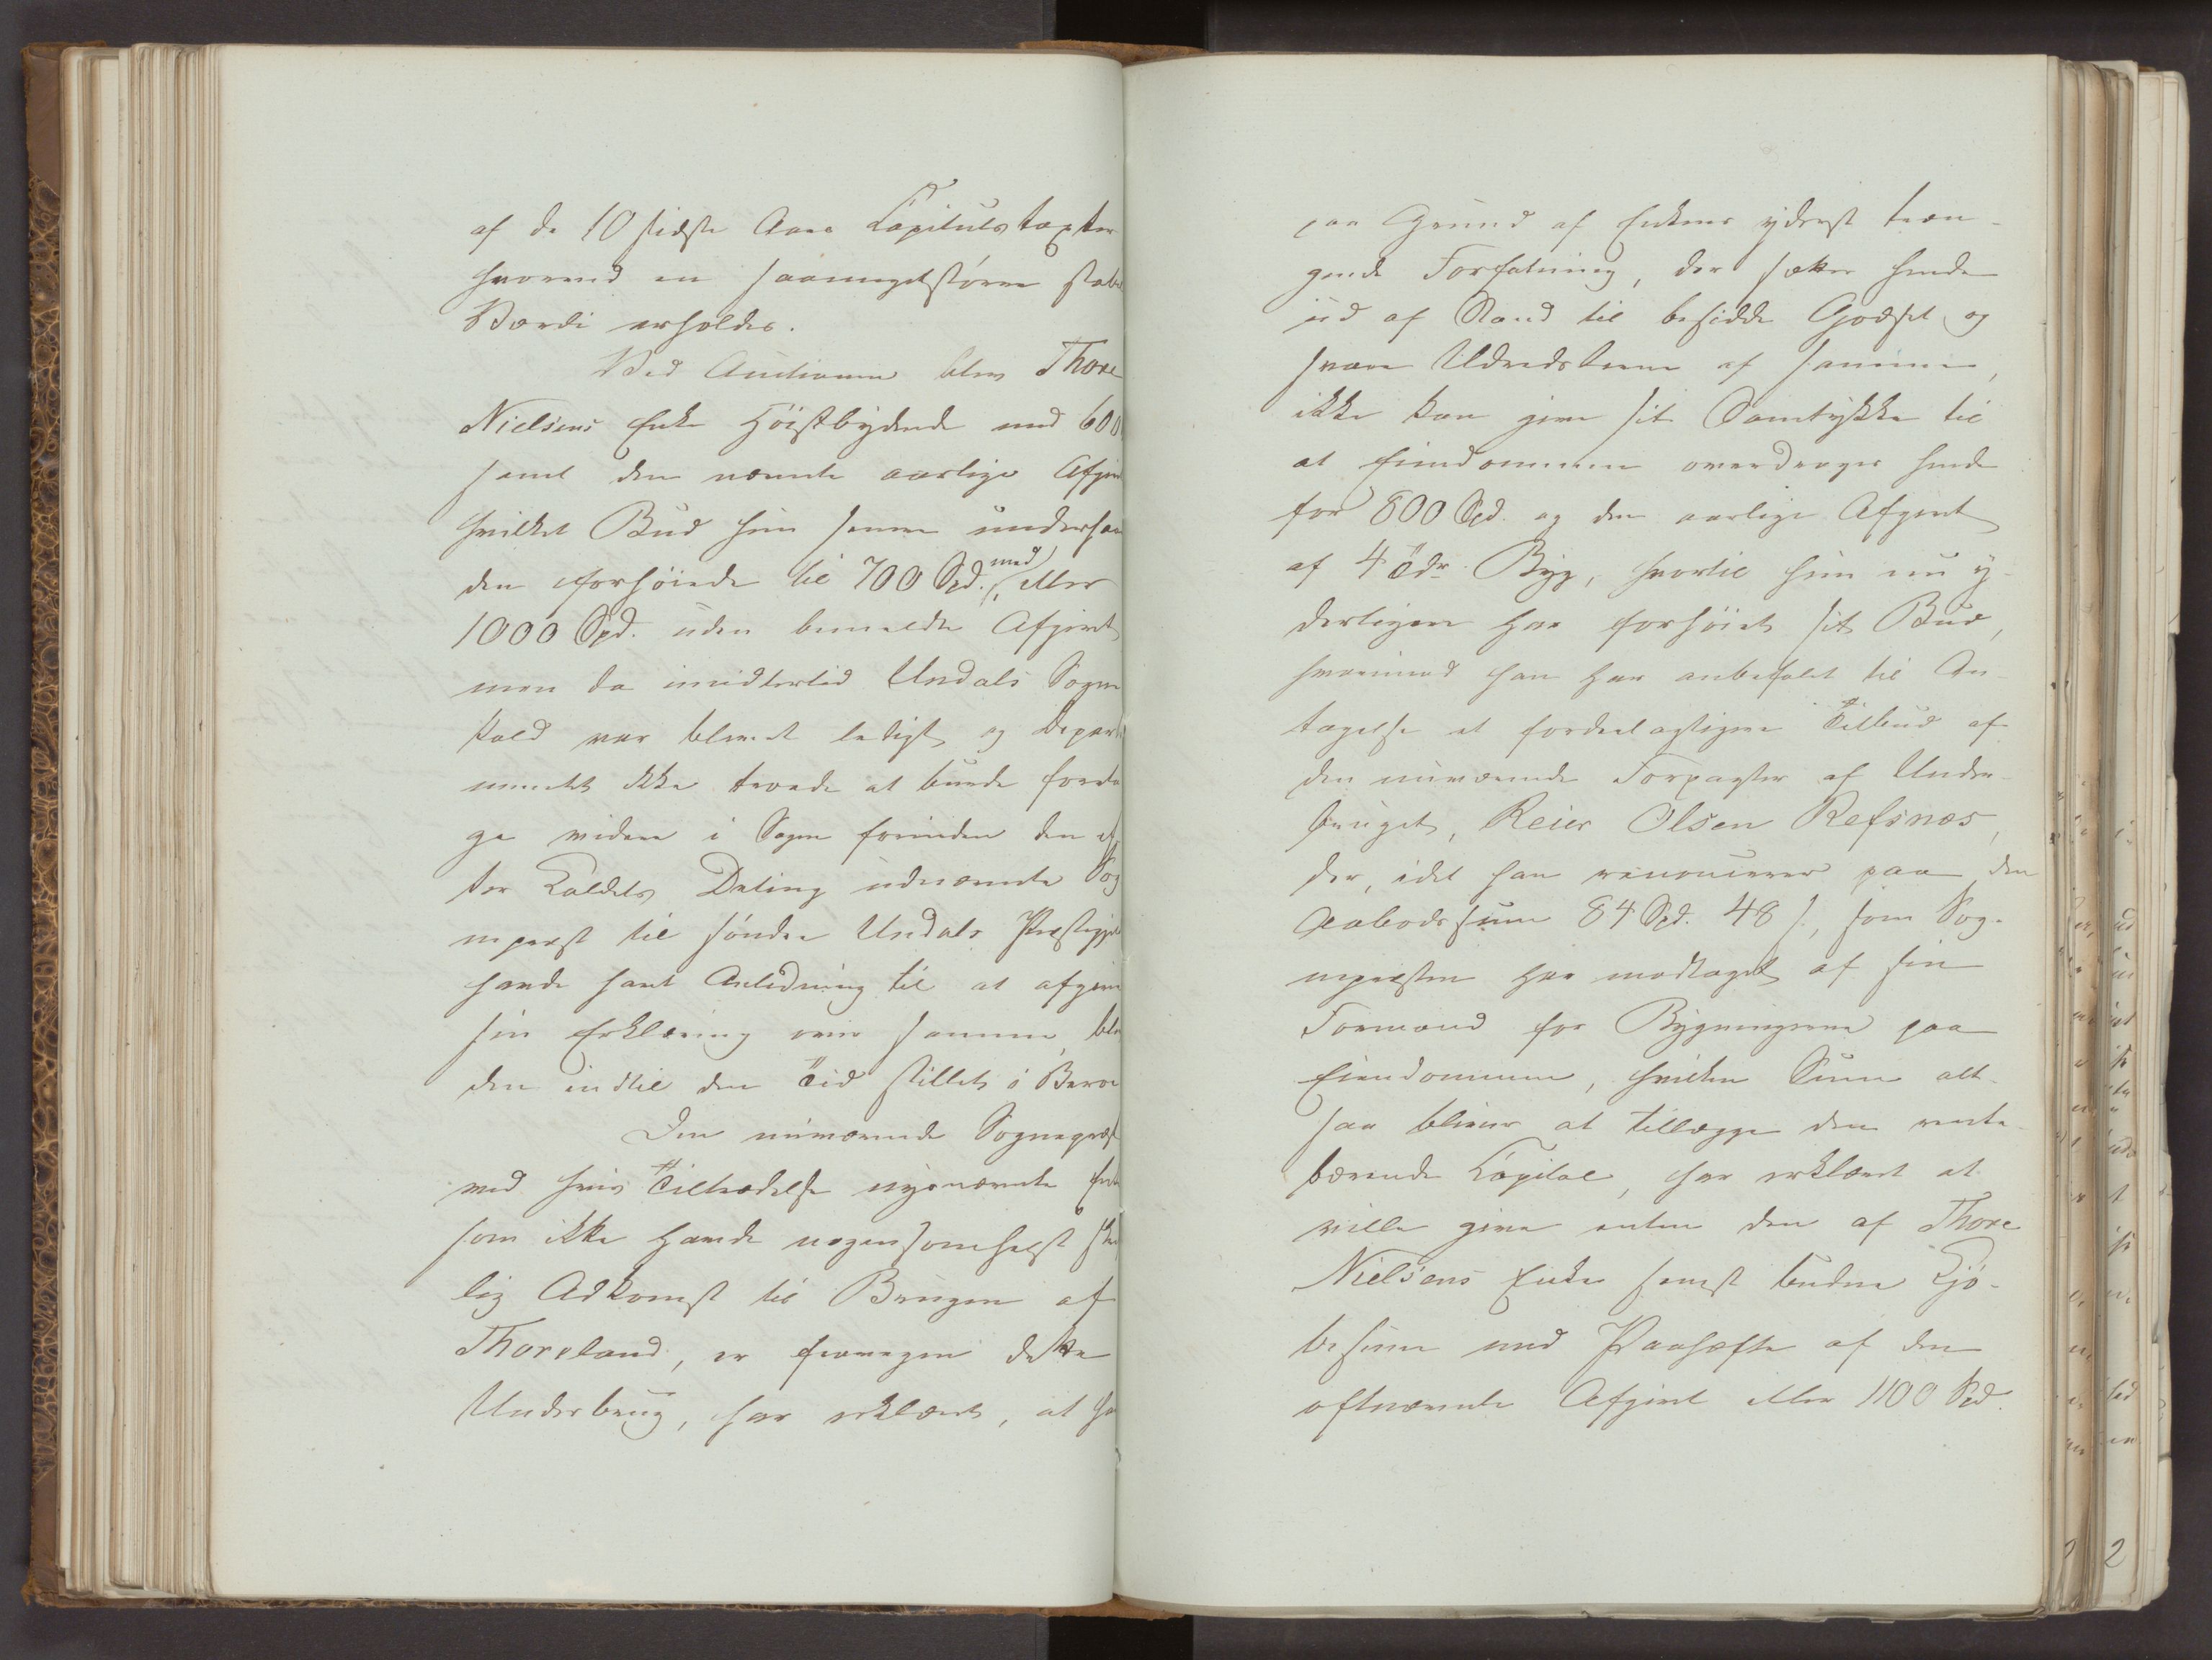 af de 10 sidste Aars Kapitulstaxter
hvorved en saameget større stabil
Værdi erholdes.
Ved Auctionen blev Thore
Nielsens Enke Høistbydende med 600
samt den nævnte aarlige Afgivt
hvilket Bud hun senere underhaan-
den forhøiede til 700 Spd. med, eller
1000 Spd. uden bemeldte Afgivt
men da imidlertid Undals Sogne
kald var blevet ledigt, og Departe
mentet ikke troede at burde foreta
ge videre i Sagen forinden den ef
ter Kaldets Deling udnævnte Sog
nepræst til søndre Undals Præstegjeld
havde havt Anledning til at afgive
sin Erklæring over samme, blev
den indtil den Tid stillet i Bero
Den nuværende Sognepræst
ved hvis Tiltrædelse nysnævnte Enke
som ikke havde nogensomhelst skel
lig Adkomst til Brugen af
Thoreland, er fravegen dette
Underbrug, har erklæret, at han
paa Grund af Enkens yderst træn-
gende Forfatning, der sætter hende
ud af Stand til besidde Godset og
svare Udredslerne af samme,
ikke kan give sit Samtykke til
at Eiendommen overdrages hende
for 800 Spd. og den aarlige Afgivt
af 4 Tdr. Byg, hvortil hun nu y-
derligere har forhøiet sit Bud,
hvorimod han har anbefalet til An-
tagelse et fordeelagtigere Tilbud af
den nuværende Forpagter af Under-
bruget, Reier Olsen Refsnæs,
der, idet han renoncerer paa den
Aabodssum 84 Spd. 48 s., som Sog-
nepræsten har modtaget af sin
Formand for Bygningerne paa
Eiendommen, hvilken Sum alt-
saa bliver at tillægge den rente-
bærende Kapital, har erklæret at
ville give enten den af Thore
Nielsens Enke senest budne Kjø-
besum med Paahæfte af den
oftnævnte Afgivt eller 1100 Spd.